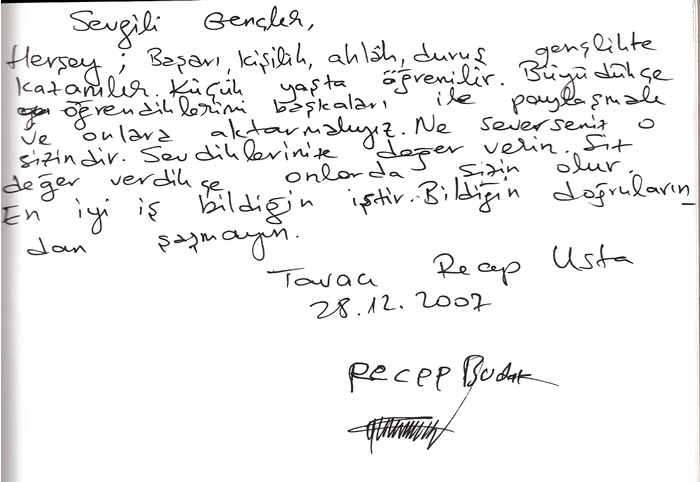 Sevgili Gençler,
Herşey; Başarı, kişilik, ahlâk, duruş gençlikte
kazanılır. Küçük yaşta öğrenilir. Büyüdükçe
öğrendiklerimi başkaları ile paylaşmalı
ve onlara aktarmalıyız. Ne severseniz o
sizindir. Sevdiklerinize değer verin. Siz
değer verdikçe onlarda sizin olur.
En iyi iş bildiğin iştir. Bildiğin doğruların
dan şaşmayın.
Tavacı Recep Usta
28.12.2007
Recep Budak